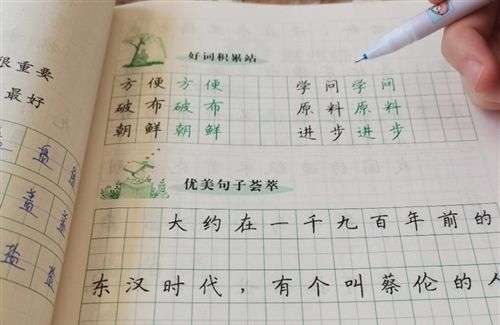 很重要
最好
盘
盘
盖
盖
盐
盐
好词积累站
方便方便 学问学问
破布破布 原料原料
朝鲜朝鲜 进步进步
优美句子荟萃
大约在一千九百年前的
东汉时代，有个叫蔡伦的人